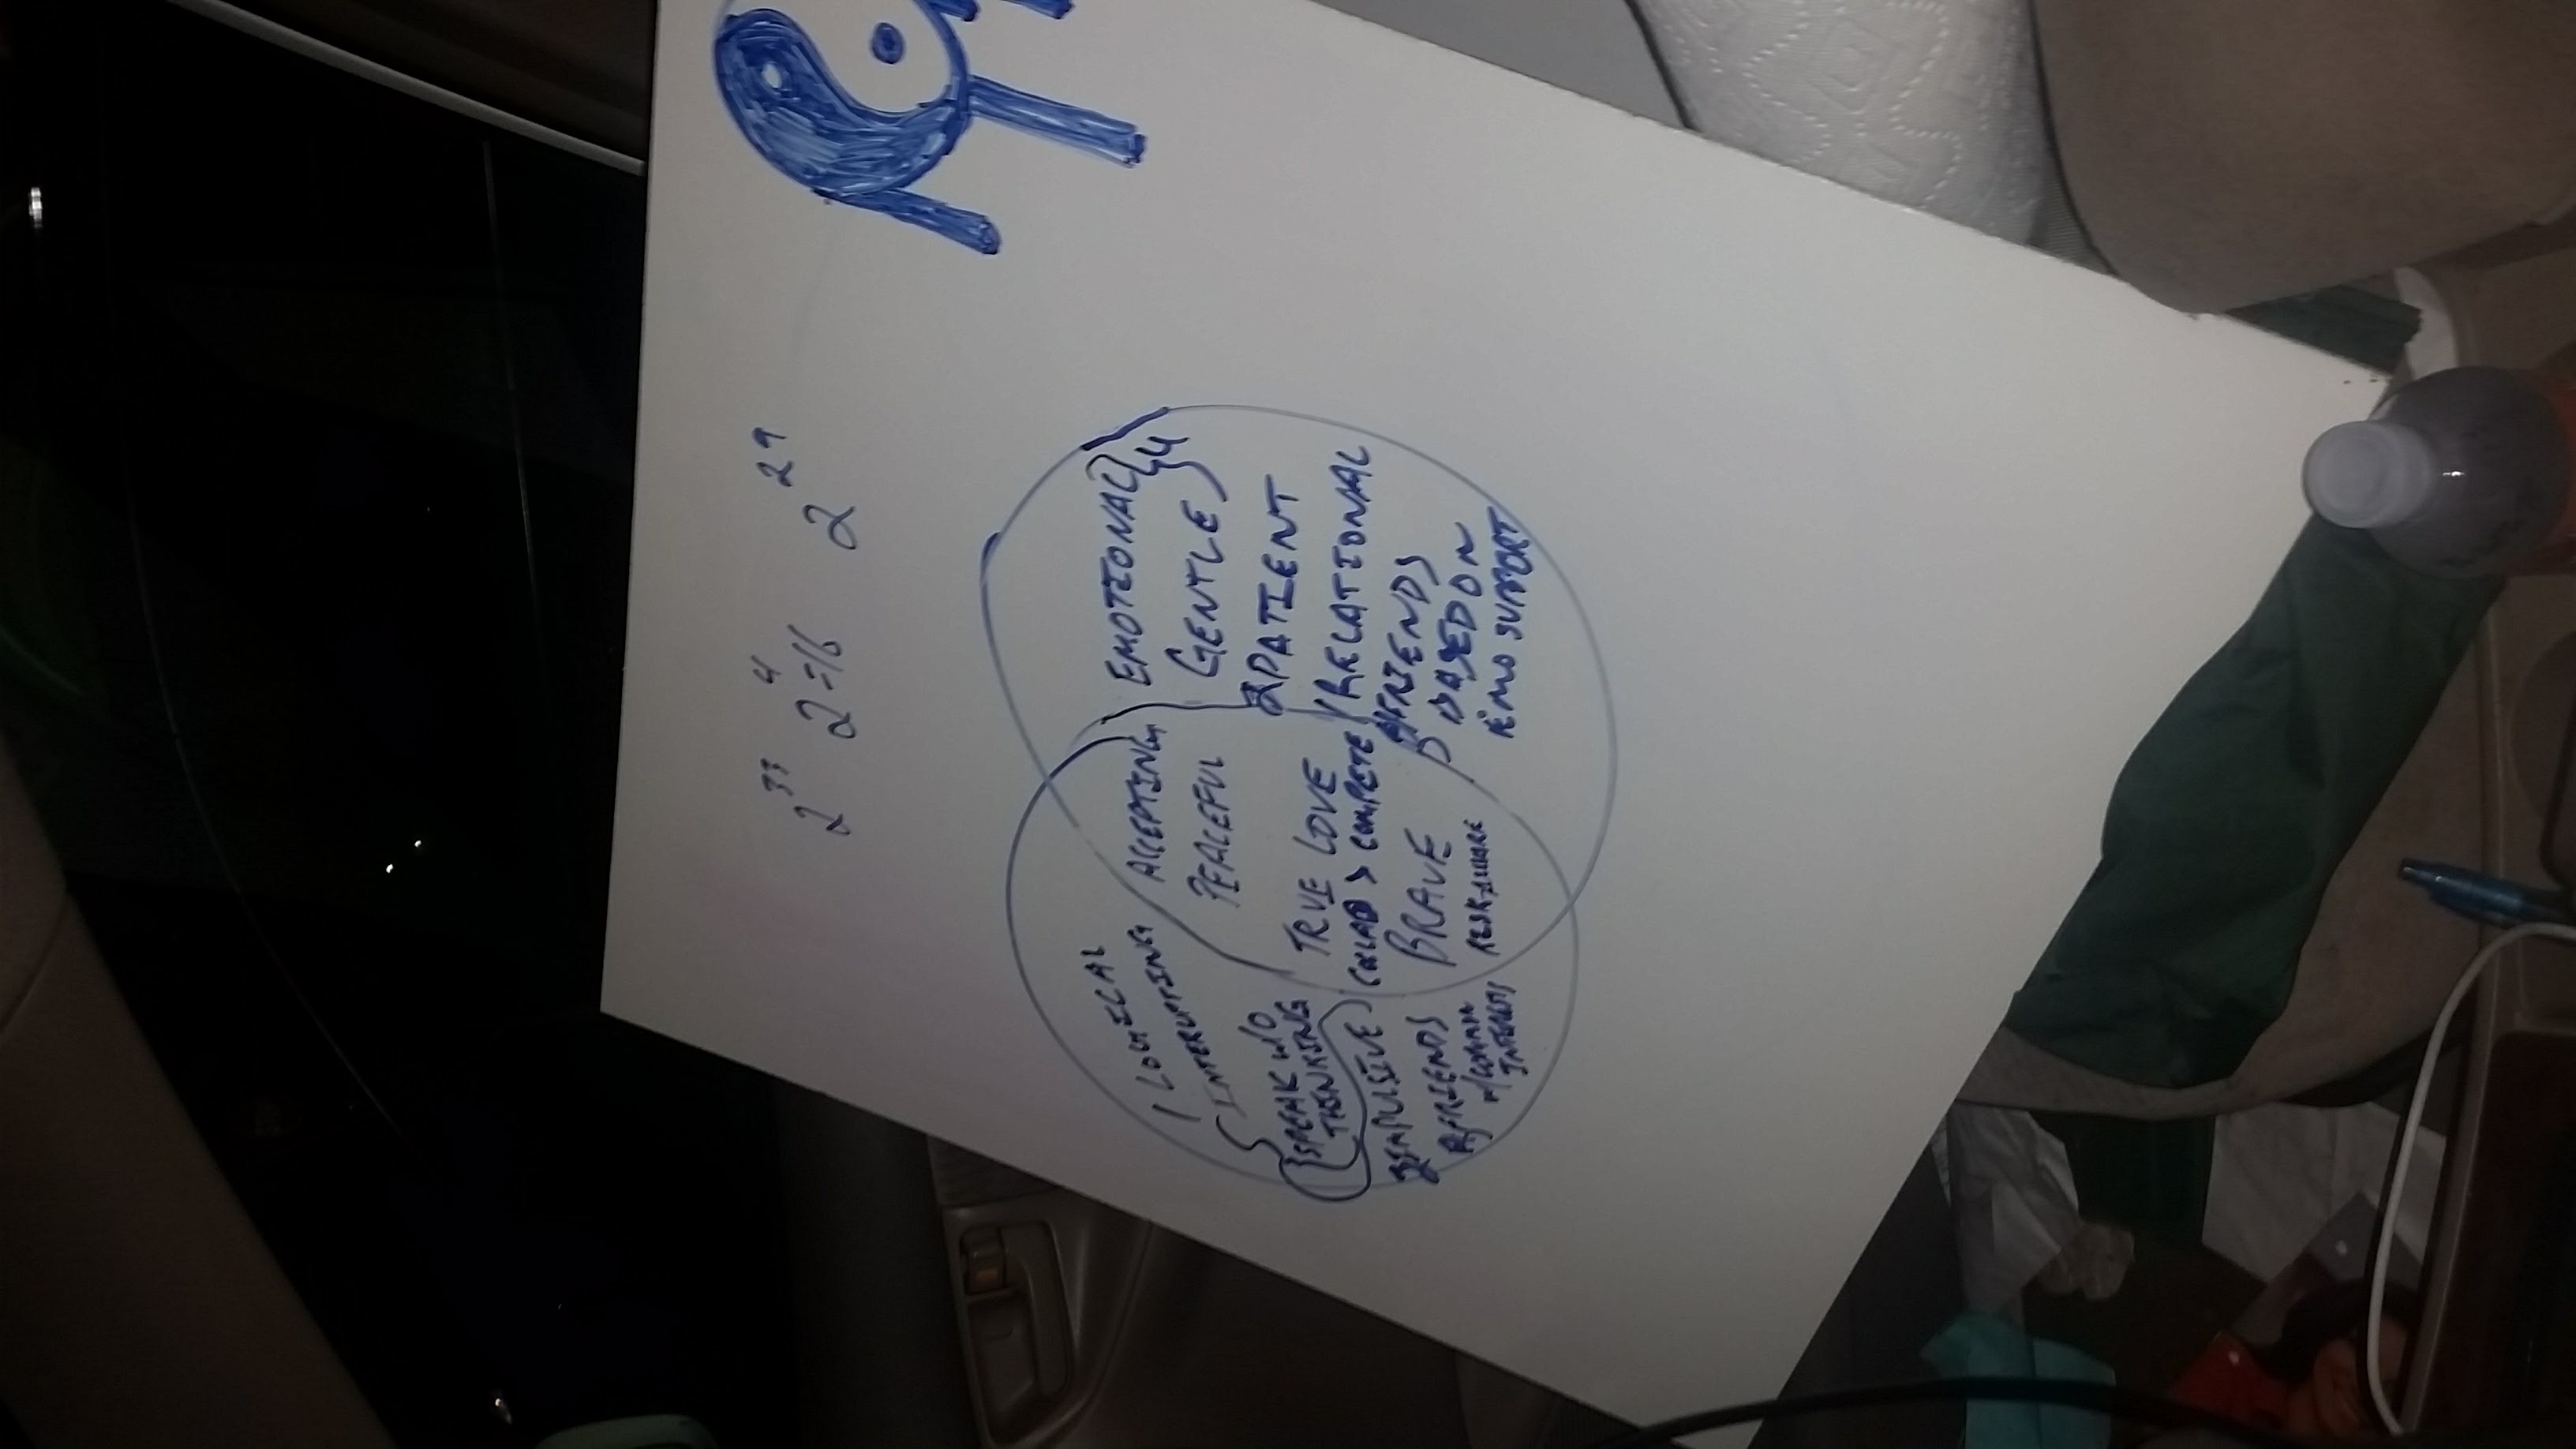 2^33 2^4=16 2^29
1 LOGICAL
INTERUPTING
SPEAK W/O
THINKING
2 IMPULSIVE
FRIENDS
W/COMMON
INTERESTS
ACCEPTING
PEACEFUL
TRUE LOVE
COLLAB > COMPETE
BRAVE
RISK-AWARE
EMOTIONAL
4
GENTLE
2 PATIENT
1 RELATIONAL
FRIENDS
BASED ON
EMO SUPPORT